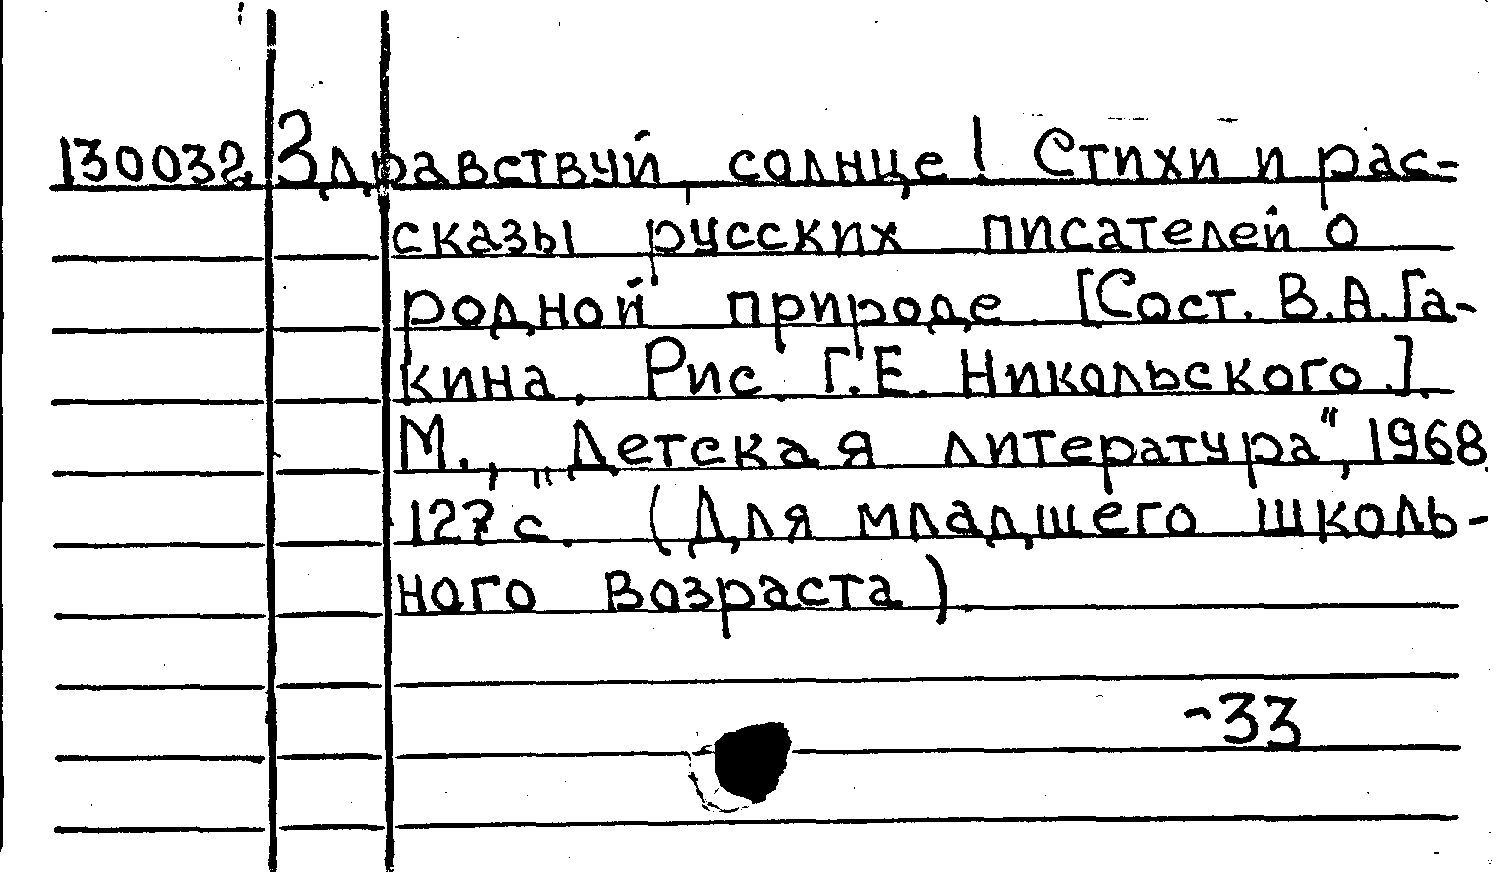 130032 Здравствуй, солнце! Стихи и рас-
сказы русских писателей о
родной природе. [Сост. В.А. Га-
кина. Рис. Г.Е. Никольского.]
М., „Детская литература", 1968.
127 с. (Для младшего школь-
ного возраста).
-33